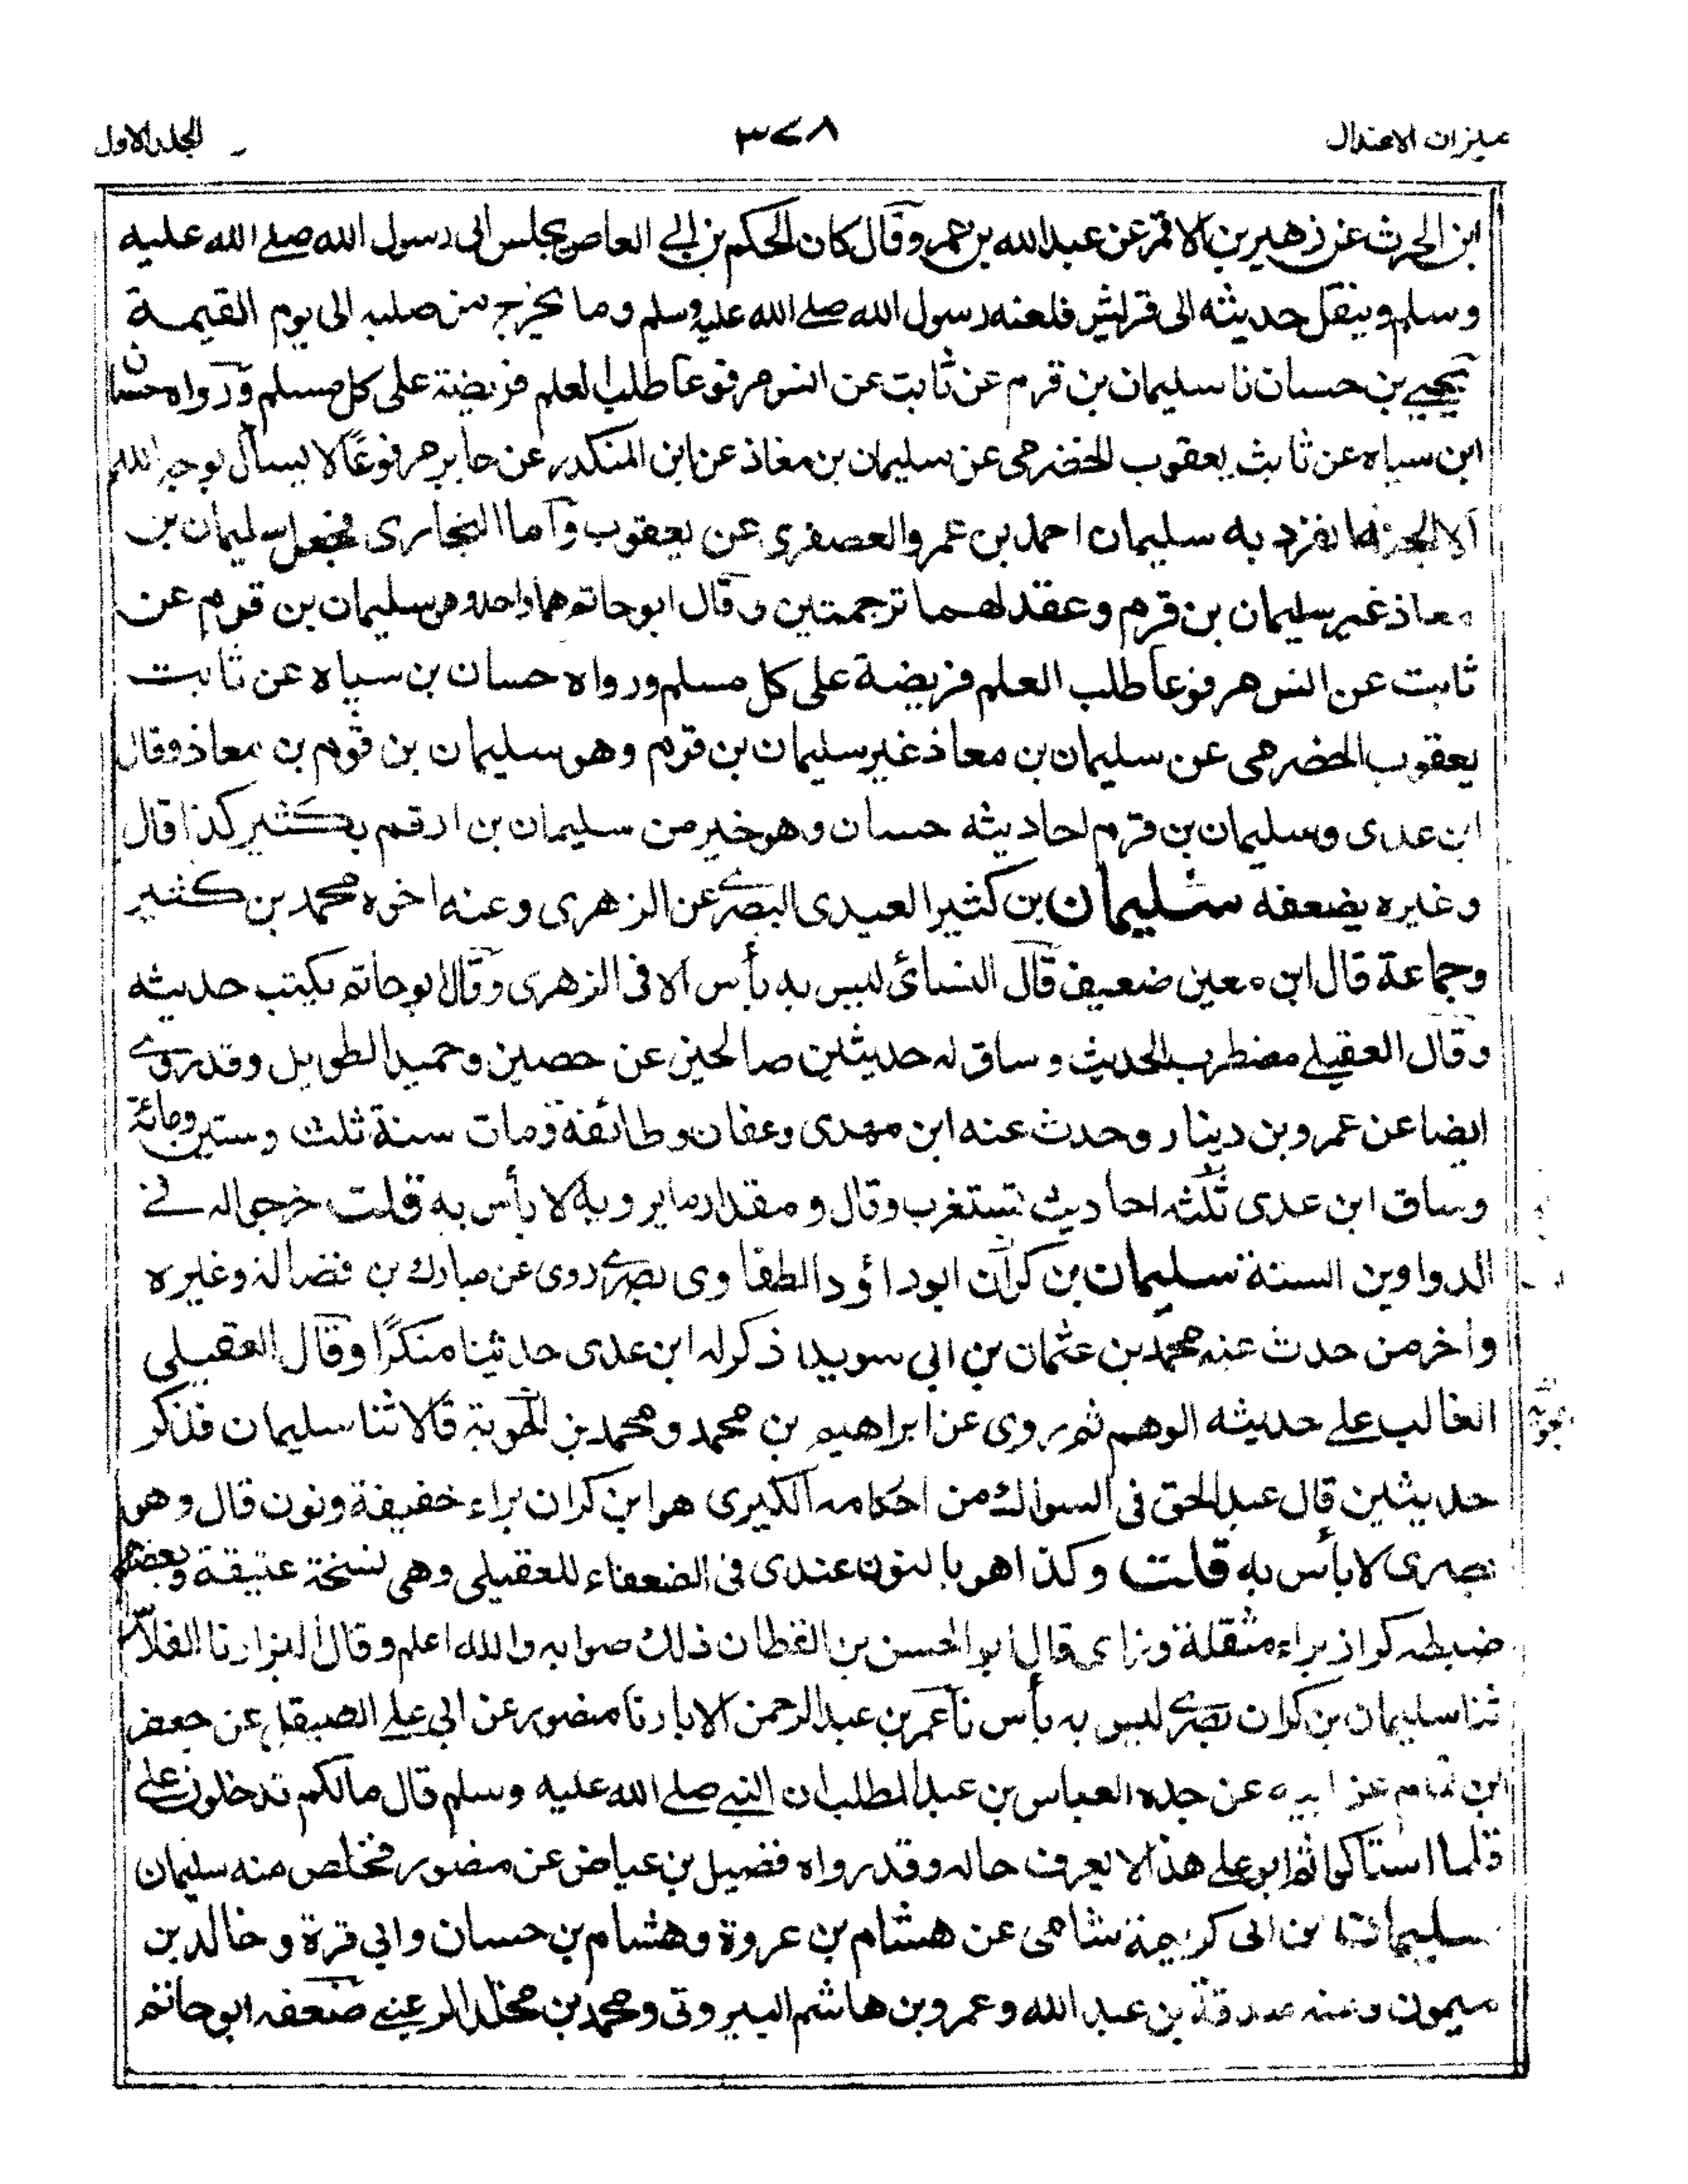 ميزان الاعتدال
٣٧٨
المجلد الاول
ابن الحرث عن زهير بن الاقمر عن عبد الله بن عمرو وقال كان الحكم بن ابي العاص يجلس الى رسول الله صلى الله عليه
وسلم وينقل حديثه الى قريش فلعنه رسول الله صلى الله عليه وسلم وما يخرج من صلبه الى يوم القيمة
يحيى بن حسان نا سليمان بن قرم عن ثابت عن انس مرفوعا طلب العلم فريضة على كل مسلم ورواه حسان
ابن سياه عن ثابت يعقوب الحضرمي عن سليمان بن معاذ عن ابن المنكدر عن جابر مرفوعًا لا يسأل بوجه الله
الا الجنة ما تفرد به سليمان احمد بن عمرو العصفري عن يعقوب وآما البخارى فجعل سليمان بن
معاذ غير سليمان بن قرم وعقد لهما ترجمتين وقال ابو حاتم هما واحد وهو سليمان بن قرم عن
ثابت عن انس مرفوعا طلب العلم فريضة على كل مسلم ورواه حسان بن سياه عن ثابت
يعقوب الحضرمى عن سليمان بن معاذ غير سليمان بن قرم وهو سليمان بن قرم بن معاذ وقال
ابن عدى وسليمان بن قرم احاديثه حسان وهو خير من سليمان بن ارقم بكثير كذا قال
وغيره يضعفه سليمان بن كثير العبدى البصرى عن الزهرى وعنه اخوه محمد بن كثير
وجماعة قال ابن معين ضعيف قال النسائ ليس به بأس الا فى الزهرى وقال ابو حاتم يكتب حديثه
وقال العقيلى مضطرب الحديث وساق له حديثين صالحين عن حصين وحميد الطويل وقد روى
ايضا عن عمرو بن دينار وحدث عنه ابن مهدى وعفان وطائفة ومات سنة ثلث وستين ومائة
وساق ابن عدى ثلثة احاديث تستغرب وقال ومقدار ما يرويه لا بأس به قلت خرجا له فى
الدواوين الستة سليمان بن كران ابو داؤد الطفاوى بصرى روى عن مبارك بن فضالة وغيره
وأخر من حدث عنه محمد بن عثمان بن ابى سويد ذكر له ابن عدى حديثا منكرًا وقال العقيلى
الغالب على حديثه الوهم ثم روى عن ابراهيم بن محمد ومحمد بن قالا ثنا سليمان فذكر
حديثين قال عبد الحق فى السواك من احكامه الكبرى هو ابن كران براء خفيفة ونون قال وهو
بصرى لا بأس به قلت وكذا هو بالنون عندى فى الضعفاء للعقيلى وهى نسخة عتيقة وبعضهم
ضبطه كراز براء مثقلة وزاى قال ابو الحسن بن القطان ذلك صوابه والله اعلم وقال البزار نا الفلاس
ثنا سليمان بن كران بصرى ليس به بأس نا عمر بن عبد الرحمن الابار نا منصور عن ابى على الصيقل عن جعفر
ابن تمام عن ابيه عن جده العباس بن عبد المطلب ان النبى صلى الله عليه وسلم قال مالكم تدخلون على
قلحا استاكوا ثم ابو على هذا لا يعرف حاله وقد رواه فضيل بن عياض عن منصور فتخلص منه سليمان
سليمان بن ابى كريمة شامى عن هشام بن عروة وهشام بن حسان وابى قرة وخالد بن
ميمون وعنه صدقة بن عبد الله وعمرو بن هاشم البيروتى ومحمد بن مخلد الرعينى ضعفه ابو حاتم